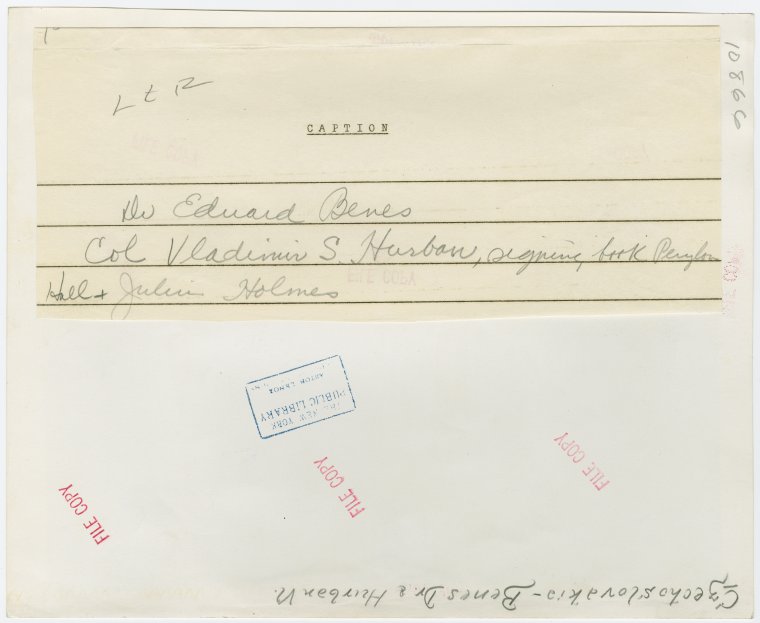 10866
L t R
CAPTION
Dr Eduard Benes
Col Vladimir S. Hurban, signing book Perylon
Hall + Julius Holmes
FILE COPY
FILE COPY
THE NEW YORK
PUBLIC LIBRARY
ASTOR LENOX
FILE COPY
FILE COPY
FILE COPY
Czechoslovakia - Benes Dr & Hurban V.